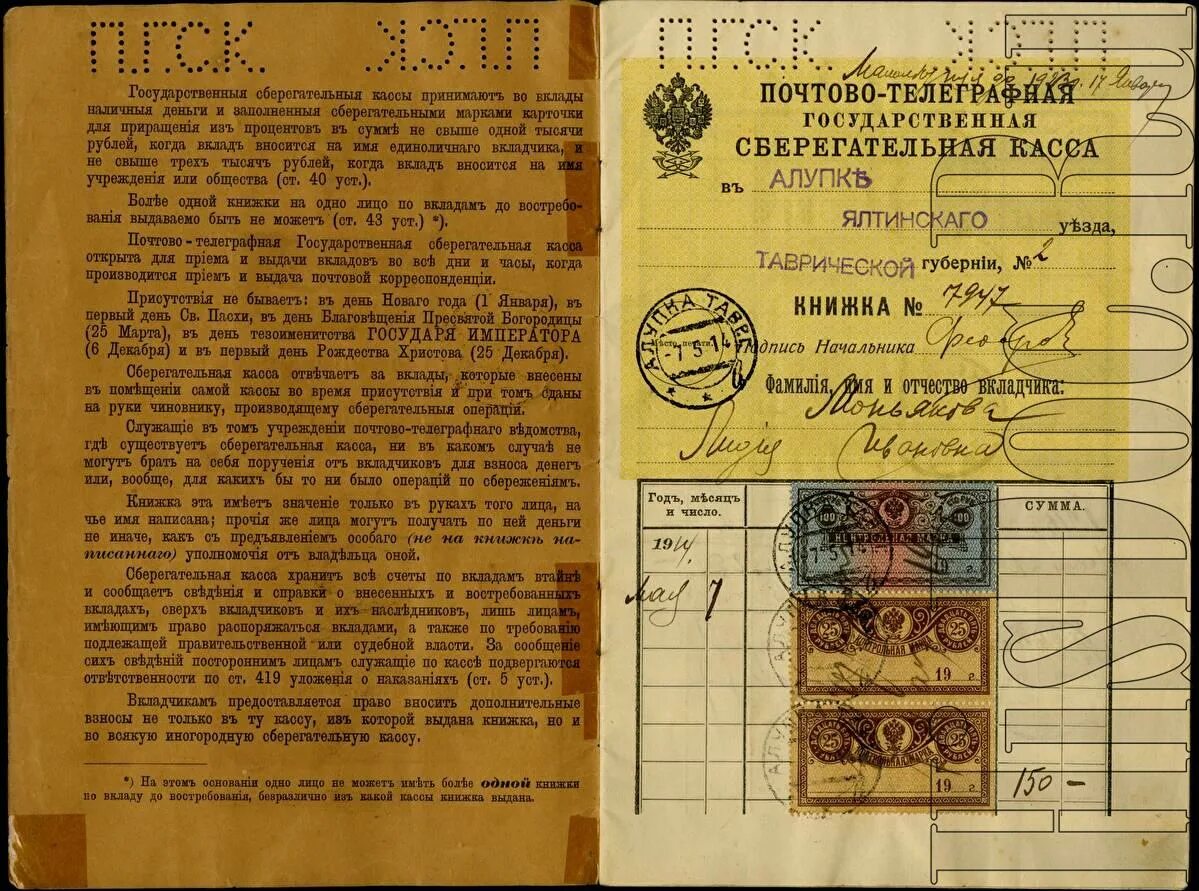 П.Г.С.К.
Государственныя сберегательныя кассы принимаютъ во вклады
наличныя деньги и заполненныя сберегательными марками карточки
для приращенія изъ процентовъ въ суммѣ не свыше одной тысячи
рублей, когда вкладъ вносится на имя единоличнаго вкладчика, и
не свыше трехъ тысячъ рублей, когда вкладъ вносится на имя
учрежденія или общества (ст. 40 уст.).
Болѣе одной книжки на одно лицо по вкладамъ до востребо-
ванія выдаваемо быть не можетъ (ст. 43 уст.) *).
Почтово-телеграфная Государственная сберегательная касса
открыта для пріема и выдачи вкладовъ во всѣ дни и часы, когда
производится пріемъ и выдача почтовой корреспонденціи.
Присутствія не бываетъ: въ день Новаго года (1 Января), въ
первый день Св. Пасхи, въ день Благовѣщенія Пресвятой Богородицы
(25 Марта), въ день тезоименитства ГОСУДАРЯ ИМПЕРАТОРА
(6 Декабря) и въ первый день Рождества Христова (25 Декабря).
Сберегательная касса отвѣчаетъ за вклады, которые внесены
въ помѣщеніи самой кассы во время присутствія и при томъ сданы
на руки чиновнику, производящему сберегательныя операціи.
Служащіе въ томъ учрежденіи почтово-телеграфнаго вѣдомства,
гдѣ существуетъ сберегательная касса, ни въ какомъ случаѣ не
могутъ брать на себя порученія отъ вкладчиковъ для взноса денегъ
или, вообще, для какихъ бы то ни было операцій по сбереженіямъ.
Книжка эта имѣетъ значеніе только въ рукахъ того лица, на
чье имя написана; прочія же лица могутъ получать по ней деньги
не иначе, какъ съ предъявленіемъ особаго (не на книжкѣ на-
писаннаго) уполномочія отъ владѣльца оной.
Сберегательная касса хранитъ всѣ счеты по вкладамъ втайнѣ
и сообщаетъ свѣдѣнія и справки о внесенныхъ и востребованныхъ
вкладахъ, сверхъ вкладчиковъ и ихъ наслѣдниковъ, лишь лицамъ,
имѣющимъ право распоряжаться вкладами, а также по требованію
подлежащей правительственной или судебной власти. За сообщеніе
сихъ свѣдѣній постороннимъ лицамъ служащіе по кассѣ подвергаются
отвѣтственности по ст. 419 уложенія о наказаніяхъ (ст. 5 уст.).
Вкладчикамъ предоставляется право вносить дополнительные
взносы не только въ ту кассу, изъ которой выдана книжка, но и
во всякую иногородную сберегательную кассу.
*) На этомъ основаніи одно лицо не можетъ имѣть болѣе одной книжки
по вкладу до востребованія, безразлично изъ какой кассы книжка выдана.
П.Г.С.К.
17 Января
ПОЧТОВО-ТЕЛЕГРАФНАЯ
ГОСУДАРСТВЕННАЯ
СБЕРЕГАТЕЛЬНАЯ КАССА
въ АЛУПКѢ
ЯЛТИНСКАГО уѣзда,
ТАВРИЧЕСКОЙ губерніи, № 2
КНИЖКА № 7947
Подпись Начальника
АЛУПКА ТАВР.
-7 5 14
Фамилія, имя и отчество вкладчика:
Моньякова
Лидія Ивановна
Годъ, мѣсяцъ
и число.
СУММА.
1914
май 7
100 100
КОНТРОЛЬНАЯ МАРКА
19 г.
25 25
КОНТРОЛЬНАЯ МАРКА
19 г.
25 25
КОНТРОЛЬНАЯ МАРКА
19 г.
150 -